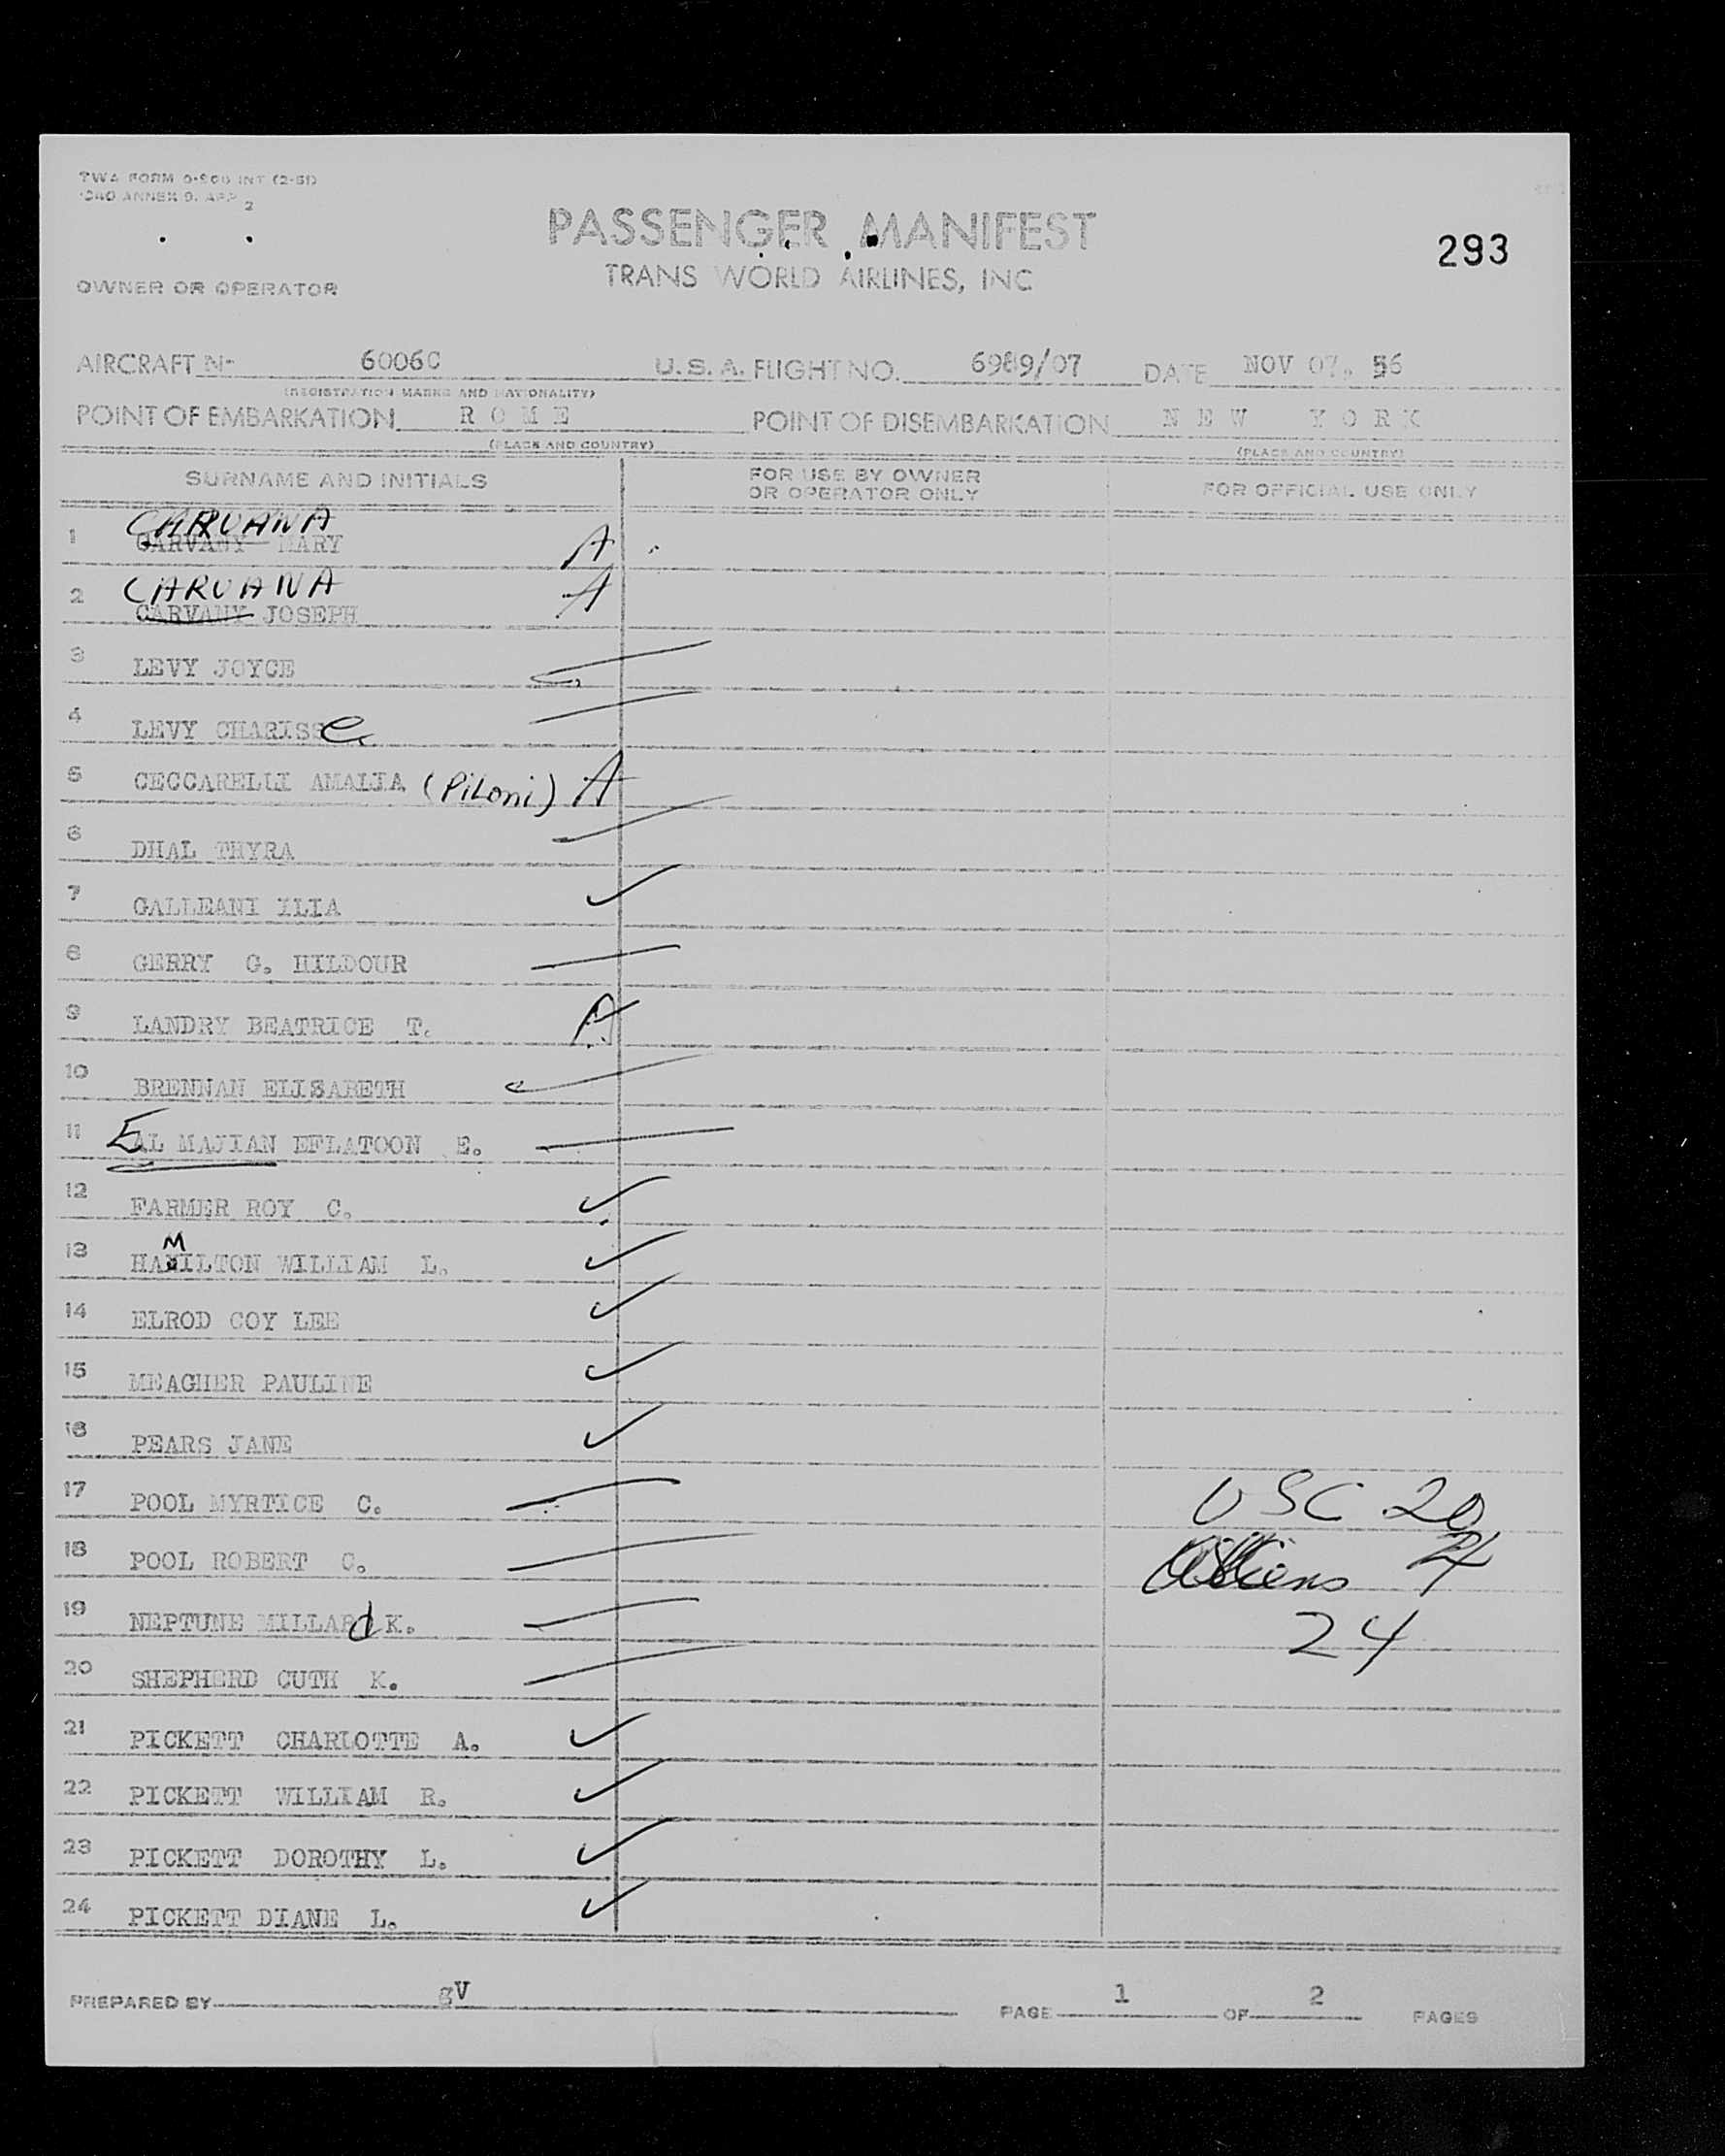 TWA FORM 0-806 INT (2-51)
ICAO ANNEX 9, APP 2
PASSENGER MANIFEST
293
TRANS WORLD AIRLINES, INC
OWNER OR OPERATOR
AIRCRAFT Nº 6006C U.S.A. FLIGHT NO. 6989/07 DATE NOV 07, 56
(REGISTRATION MARKS AND NATIONALITY)
POINT OF EMBARKATION ROME POINT OF DISEMBARKATION NEW YORK
(PLACE AND COUNTRY) (PLACE AND COUNTRY)
SURNAME AND INITIALS FOR USE BY OWNER OR OPERATOR ONLY FOR OFFICIAL USE ONLY
CARUANA
1 GARVANY MARY A
CARUANA
2 GARVANY JOSEPH A
3 LEVY JOYCE
4 LEVY CHARISSe
5 CECCARELLI AMALIA (Piloni) A
6 DHAL THYRA
7 GALLEANI ILIA
8 GERRY G. HILDOUR
9 LANDRY BEATRICE T. A
10 BRENNAN ELISABETH
11 EL MAJIAN EFLATOON E.
12 FARMER ROY C.
13 HAMILTON WILLIAM L.
14 ELROD COY LEE
15 MEAGHER PAULINE
16 PEARS JANE
17 POOL MYRTICE C. USC 20
18 POOL ROBERT C. Aliens 4
19 NEPTUNE MILLARd K. 24
20 SHEPHERD CUTH K.
21 PICKETT CHARLOTTE A.
22 PICKETT WILLIAM R.
23 PICKETT DOROTHY L.
24 PICKETT DIANE L.
PREPARED BY gV PAGE 1 OF 2 PAGES